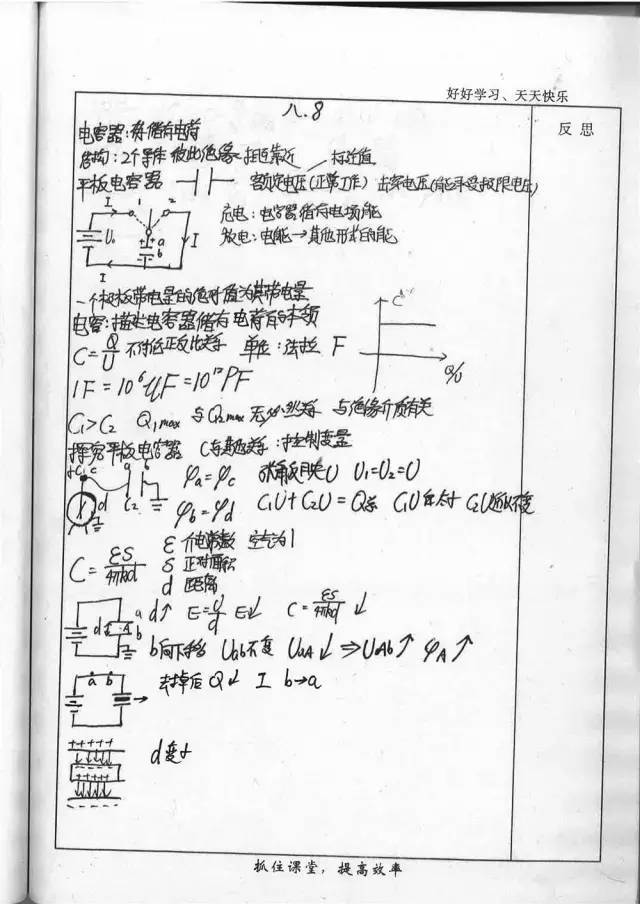 好好学习、天天快乐
八.8
反思
电容器:存储有电荷
结构:2个导体 彼此绝缘 相近靠近 标定值
平板电容器 额定电压(正常工作) 击穿电压(能承受极限电压)
I 1 2
U₀ a b I
I
充电:电容器储存电场能
放电:电能→其他形式的能
一个极板带电量的绝对值为其带电量
电容:描述电容器储存电荷的本领
C=Q/U 不存在正反比关系 单位:法拉 F
C
Q/U
1F=10⁶μF=10¹²PF
C₁>C₂ Q₁max 与Q₂max无必然关系 与绝缘介质有关
探究平板电容器 C与其他关系:控制变量
C₁ c a b
d C₂
φa=φc 张角反映U U₁=U₂=U
φb=φd C₁U+C₂U=Q总 C₁U C₂U近似不变
C=εS/4πkd
ε 介电常数 空气为1
S 正对面积
d 距离
d a A b
d↑ E=U/d E↓ C=εS/4πkd ↓
b向下移 Uab不变 UaA↓ ⇒UAb↑ φA↑
a b
去掉后Q↓ I b→a
+++++
+++++
d变小
抓住课堂,提高效率